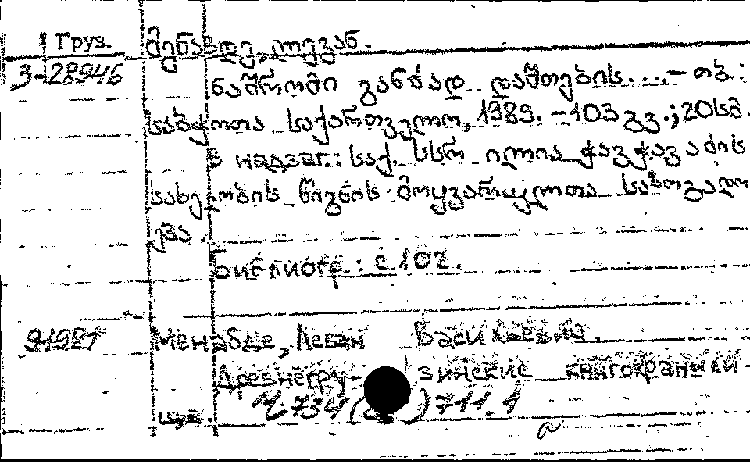 Груз. მენაბდე, ლევან.
3-28946 ნაშრომი განძად დაშთების....– თბ.:
საბჭოთა საქართველო, 1989. – 103 გვ.; 20სმ.
В надзаг.: საქ. სსრ ილია ჭავჭავაძის
სახელობის წიგნის მოყვარულთა საზოგადო
ება.
Библиогр.: с. 102.
91981 Менабде, Леван Васильевич.
Древнегрузинские книгохранили-
ща. Ч 734( )711.1
а